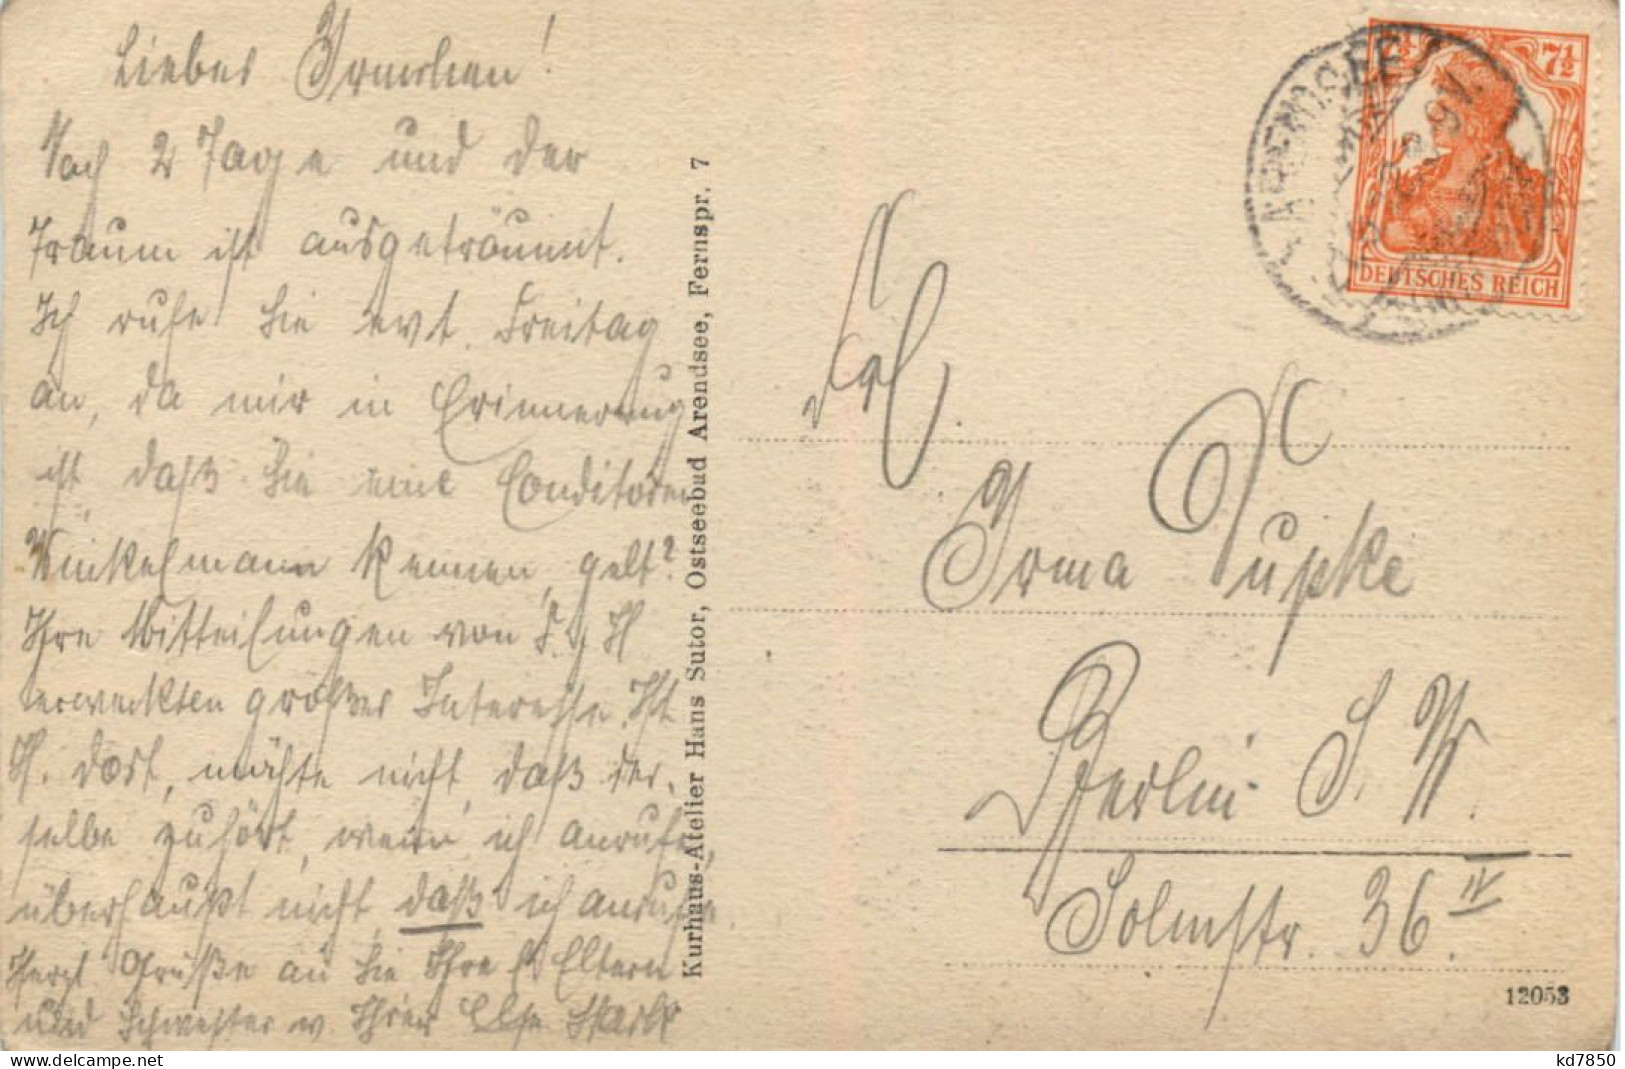 Liebes Irmchen!
Noch 2 Tage und der
Traum ist ausgeträumt.
Ich rufe Sie evt. Freitag
an, da mir in Erinnerung
ist, daß Sie eine Conditorei
Winkelmann kennen, gelt?
Ihre Mitteilungen von H
erweckten großes Interesse. Ist
H. dort, möchte nicht, daß der-
selbe zuhört, wenn ich anrufe,
überhaupt nicht, daß ich anrufe.
Herzl. Grüße an Sie Ihre l. Eltern
und Schwester v. Ihrer Else
Kurhaus-Atelier Hans Sutor, Ostseebad Arendsee, Fernspr. 7
ARENDSEE
7½
7½
DEUTSCHES REICH
Frl.
Irma Pupke
Berlin S.W.
Solmsstr. 36 IV
12053
kd7850